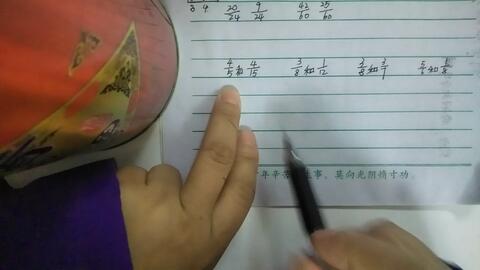 3 4 20/24 9/24 42/60 25/60
4/5和4/15 3/8和1/12 3/8和3/7 5/6和
年辛苦 事，莫向光阴惰寸功。